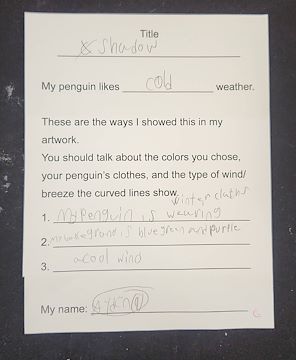 Title
shadow
My penguin likes cold weather.
These are the ways I showed this in my
artwork.
You should talk about the colors you chose,
your penguin's clothes, and the type of wind/
breeze the curved lines show.
winter cloths
1. My Penguin is wearing
2. my backgrand is blue green and purtle
3. a cool wind
My name: